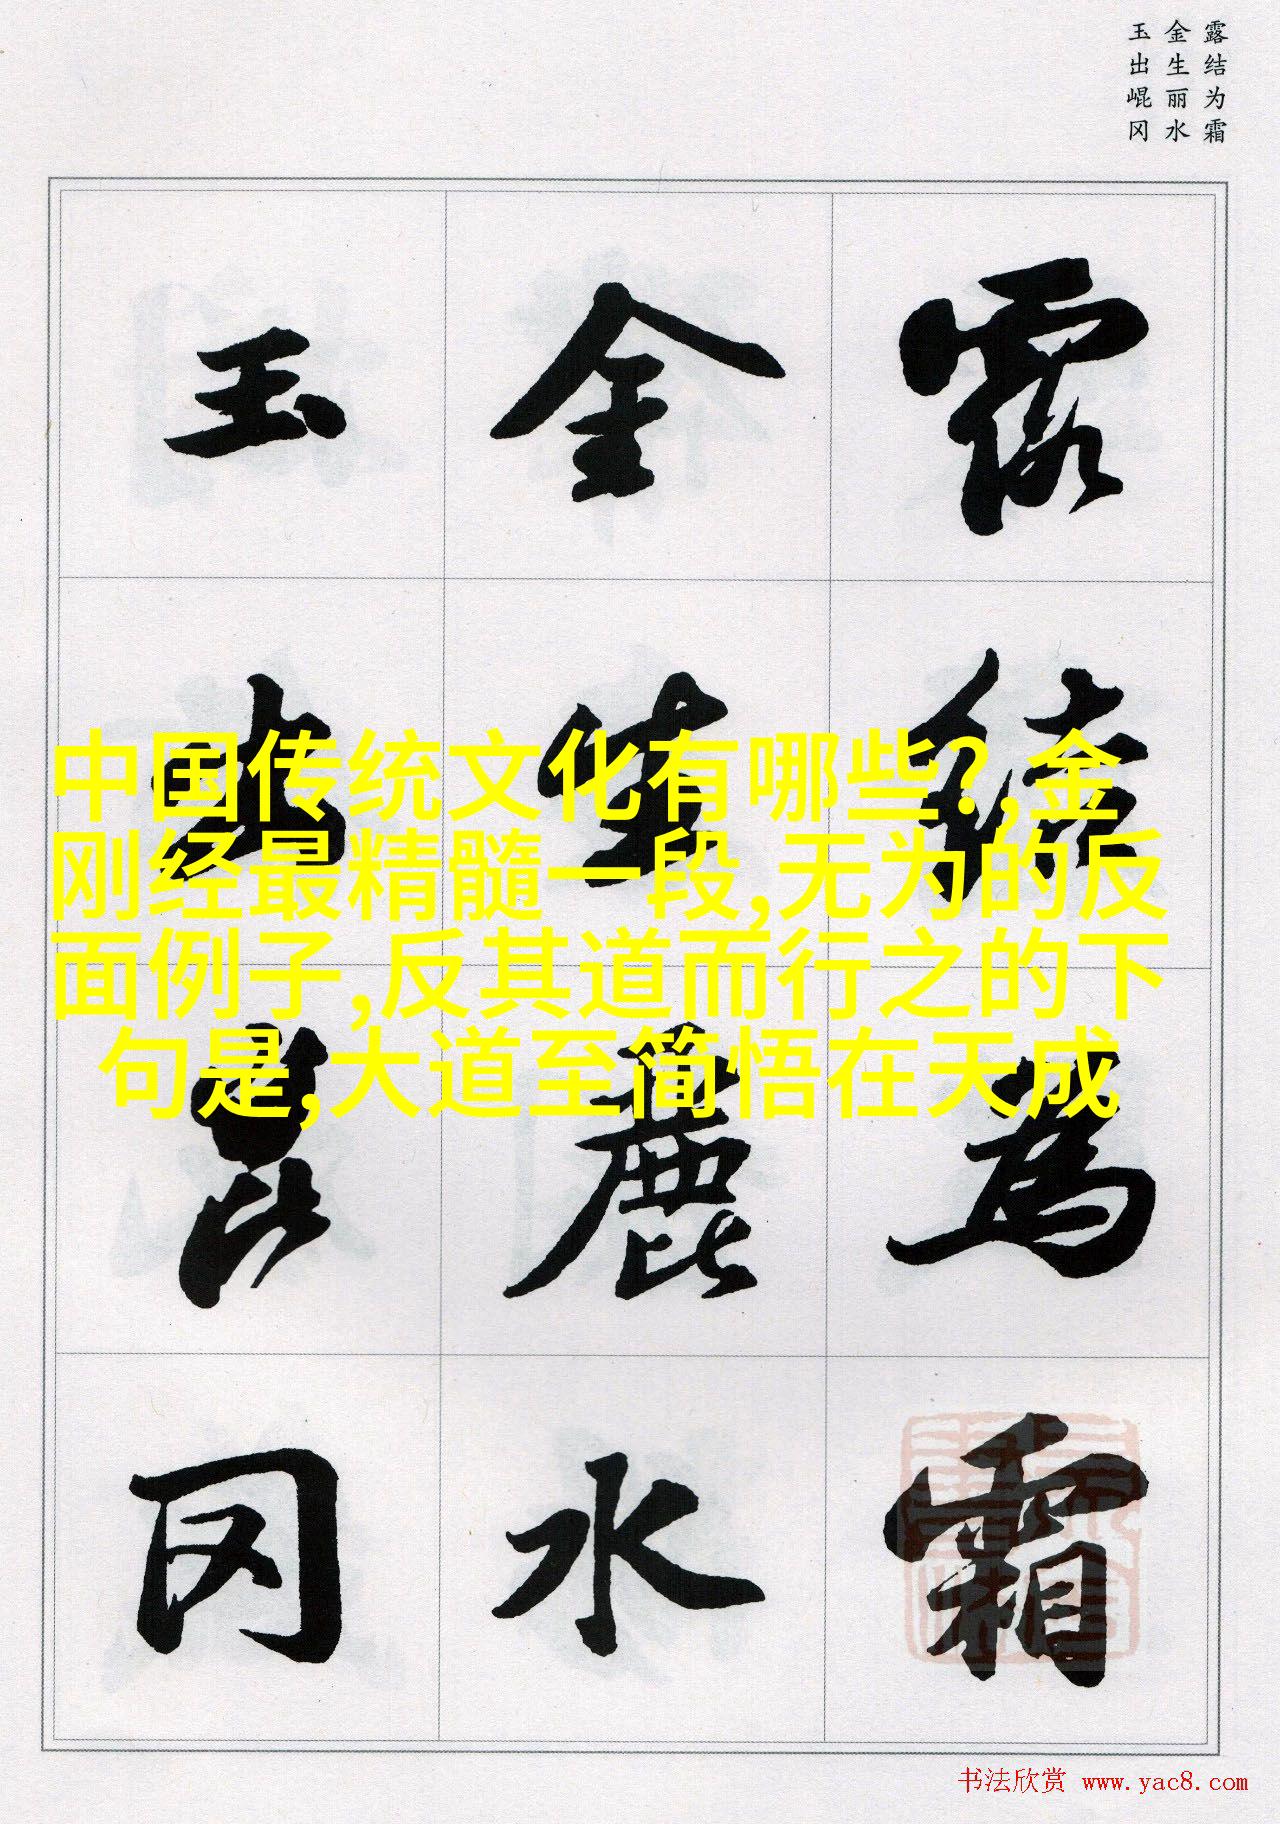 露结为霜
金生丽水
玉出崐冈
露結為霜
金生麗水
玉出崑冈
中国传统文化有哪些?,金
刚经最精髓一段,无为的反
面例子,反其道而行之的下
句是,大道至简悟在天成
书法欣赏 www.yac8.com